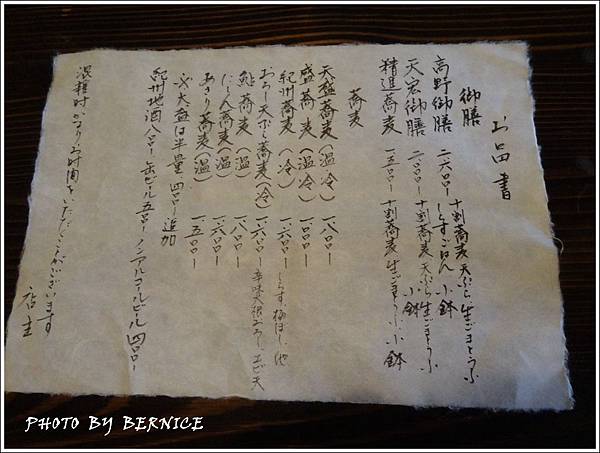 お品書
御膳
高野御膳 二六〇〇ー 十割蕎麦 天ぷら 生ごまとうふ
しらすごはん 小鉢
天宏御膳 二〇〇〇ー 十割蕎麦 天ぷら 生ごまとうふ
小鉢
精進蕎麦 一五〇〇ー 十割蕎麦 生ごまとうふ 小鉢
蕎麦
天盛蕎麦(温冷) 一八〇〇ー
盛蕎麦(温冷) 一二〇〇ー
紀州蕎麦(冷) 一六〇〇ー しらす、梅ほし、他
おろし天ぷら蕎麦(冷) 一六〇〇ー 辛味大根おろし、エビ天
鮎蕎麦(温) 一八〇〇ー
にしん蕎麦(温) 一六〇〇ー
あさり蕎麦(温) 一五〇〇ー
※大盛は半量 四〇〇ー追加
紀州地酒 八〇〇ー 缶ビール 五〇〇ー ノンアルコールビール 四〇〇ー
混雑時かなりお時間をいただくことがございます
店主
PHOTO BY BERNICE